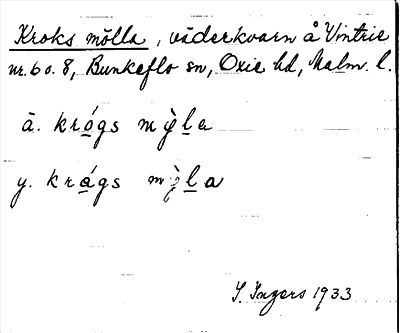 Kroks mölla, väderkvarn å Vintrie
nr. 6 o. 8, Bunkeflo sn, Oxie hd, Malm. l.
ä. krógs mỳla
y. krágs mỳla
I. Ingers 1933